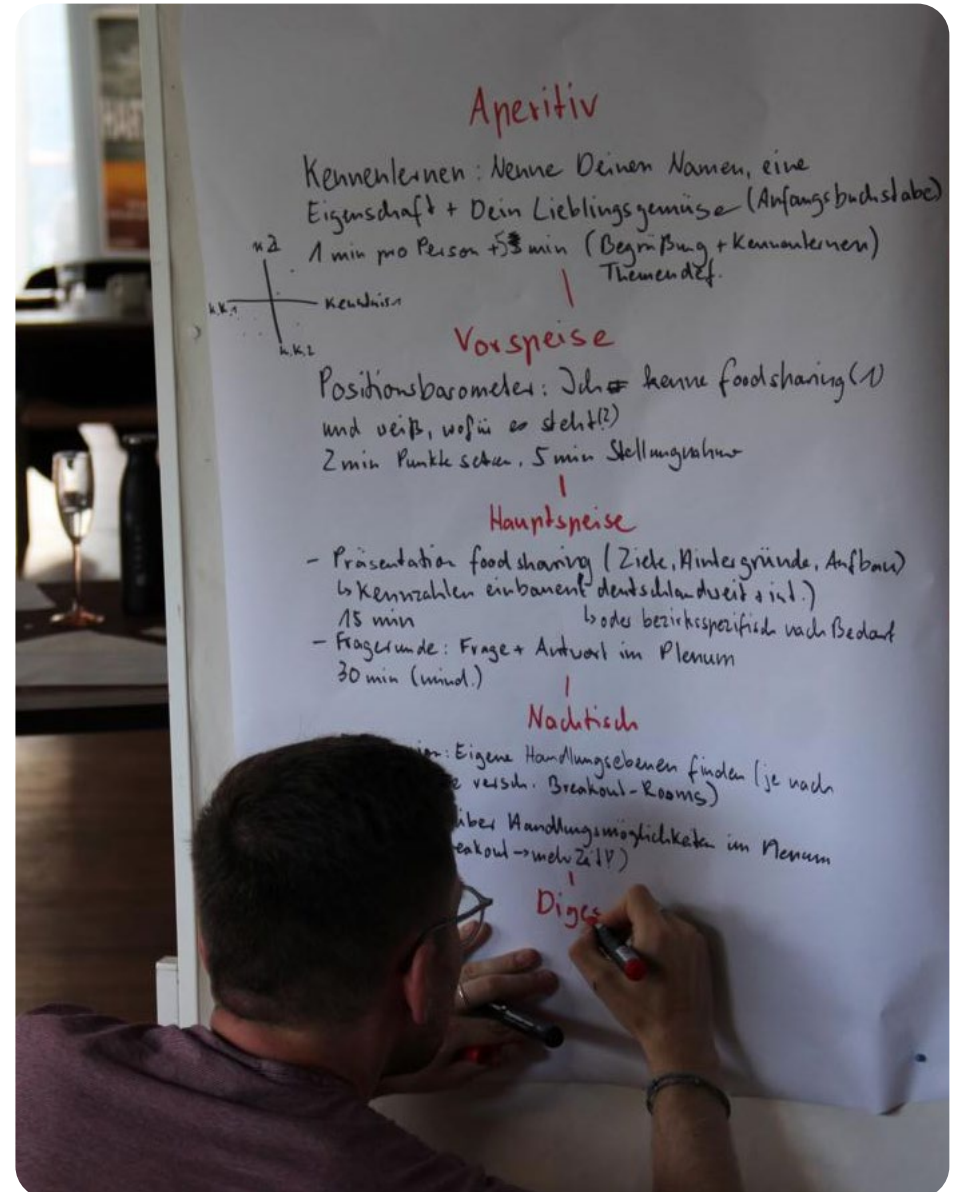 Aperitiv
Kennenlernen: Nenne Deinen Namen, eine
Eigenschaft + Dein Lieblingsgemüse (Anfangsbuchstabe)
1 min pro Person + 5 min (Begrüßung + Kennenlernen)
Themendef.
K. 2
k.K. 1
Kenntnis 1
k.K. 2
Vorspeise
Positionsbarometer: Ich kenne foodsharing (1)
und weiß, wofür es steht (2)
2 min Punkte setzen, 5 min Stellungnahme
Hauptspeise
- Präsentation foodsharing (Ziele, Hintergründe, Aufbau)
↳ Kennzahlen einbauen deutschlandweit + int.)
15 min ↳ oder bezirksspezifisch nach Bedarf
- Fragerunde: Frage + Antwort im Plenum
30 min (mind.)
Nachtisch
: Eigene Handlungsebenen finden (je nach
versch. Breakout-Rooms)
über Handlungsmöglichkeiten im Plenum
eakout → mehr Zeit)
Diges